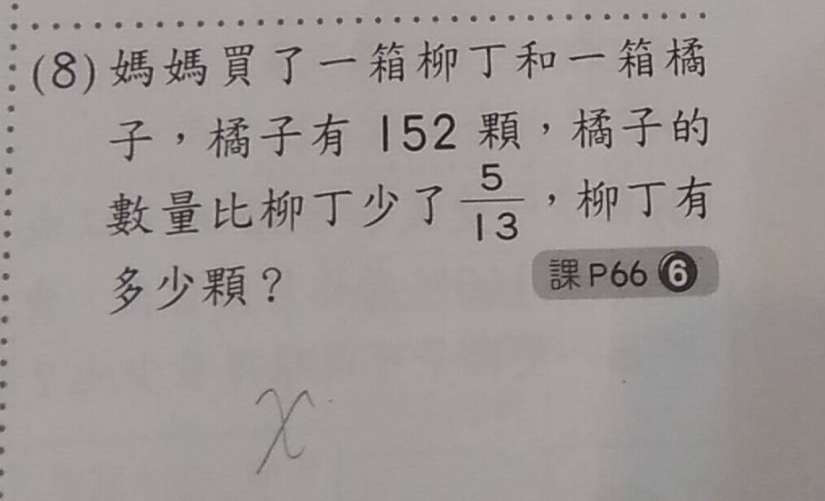 (8) 媽媽買了一箱柳丁和一箱橘
子，橘子有 152 顆，橘子的
數量比柳丁少了 5/13，柳丁有
多少顆？
課P66 6
x